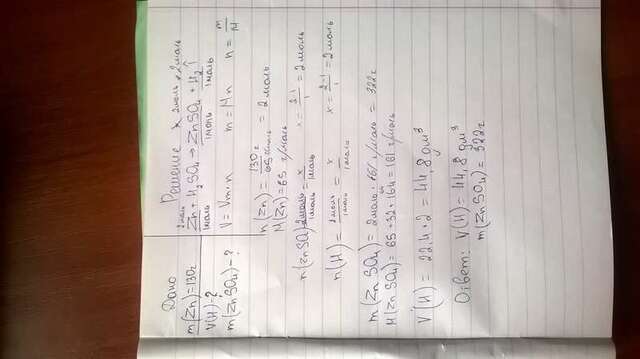 Дано
m(Zn)=130г
V(H)-?
m(ZnSO4)-?
Решение
2моль x 2моль x 2моль
Zn + H2SO4 → ZnSO4 + H2↑
1моль 1моль 1моль
V = Vm·n m = Mn n = m/M
n(Zn) = 130г/65г/моль = 2моль
M(Zn)=65 г/моль
n(ZnSO4) 2моль/1моль = x/1моль x = 2·1/1 = 2моль
n(H) = 2моль/1моль = x/1моль x = 2·1/1 = 2моль
m(ZnSO4) = 2моль·161г/моль = 322г
M(ZnSO4) = 65+32+16·4=161г/моль
V(H) = 22.4·2 = 44,8дм³
Ответ: V(H) = 44,8дм³
m(ZnSO4) = 322г